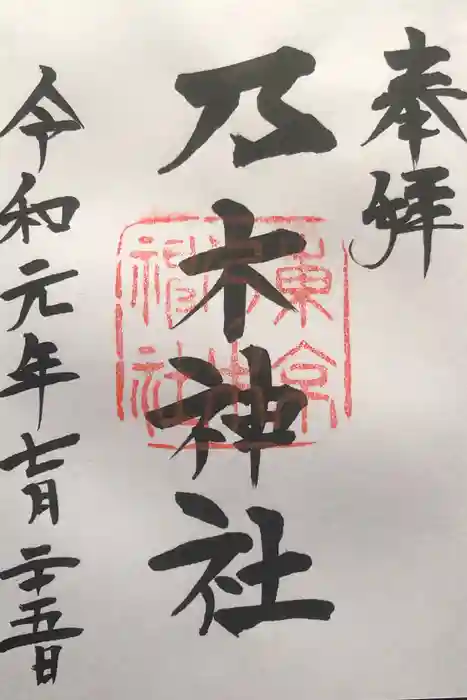 奉拝
乃木神社
東京
乃木
神社
令和元年七月二十五日